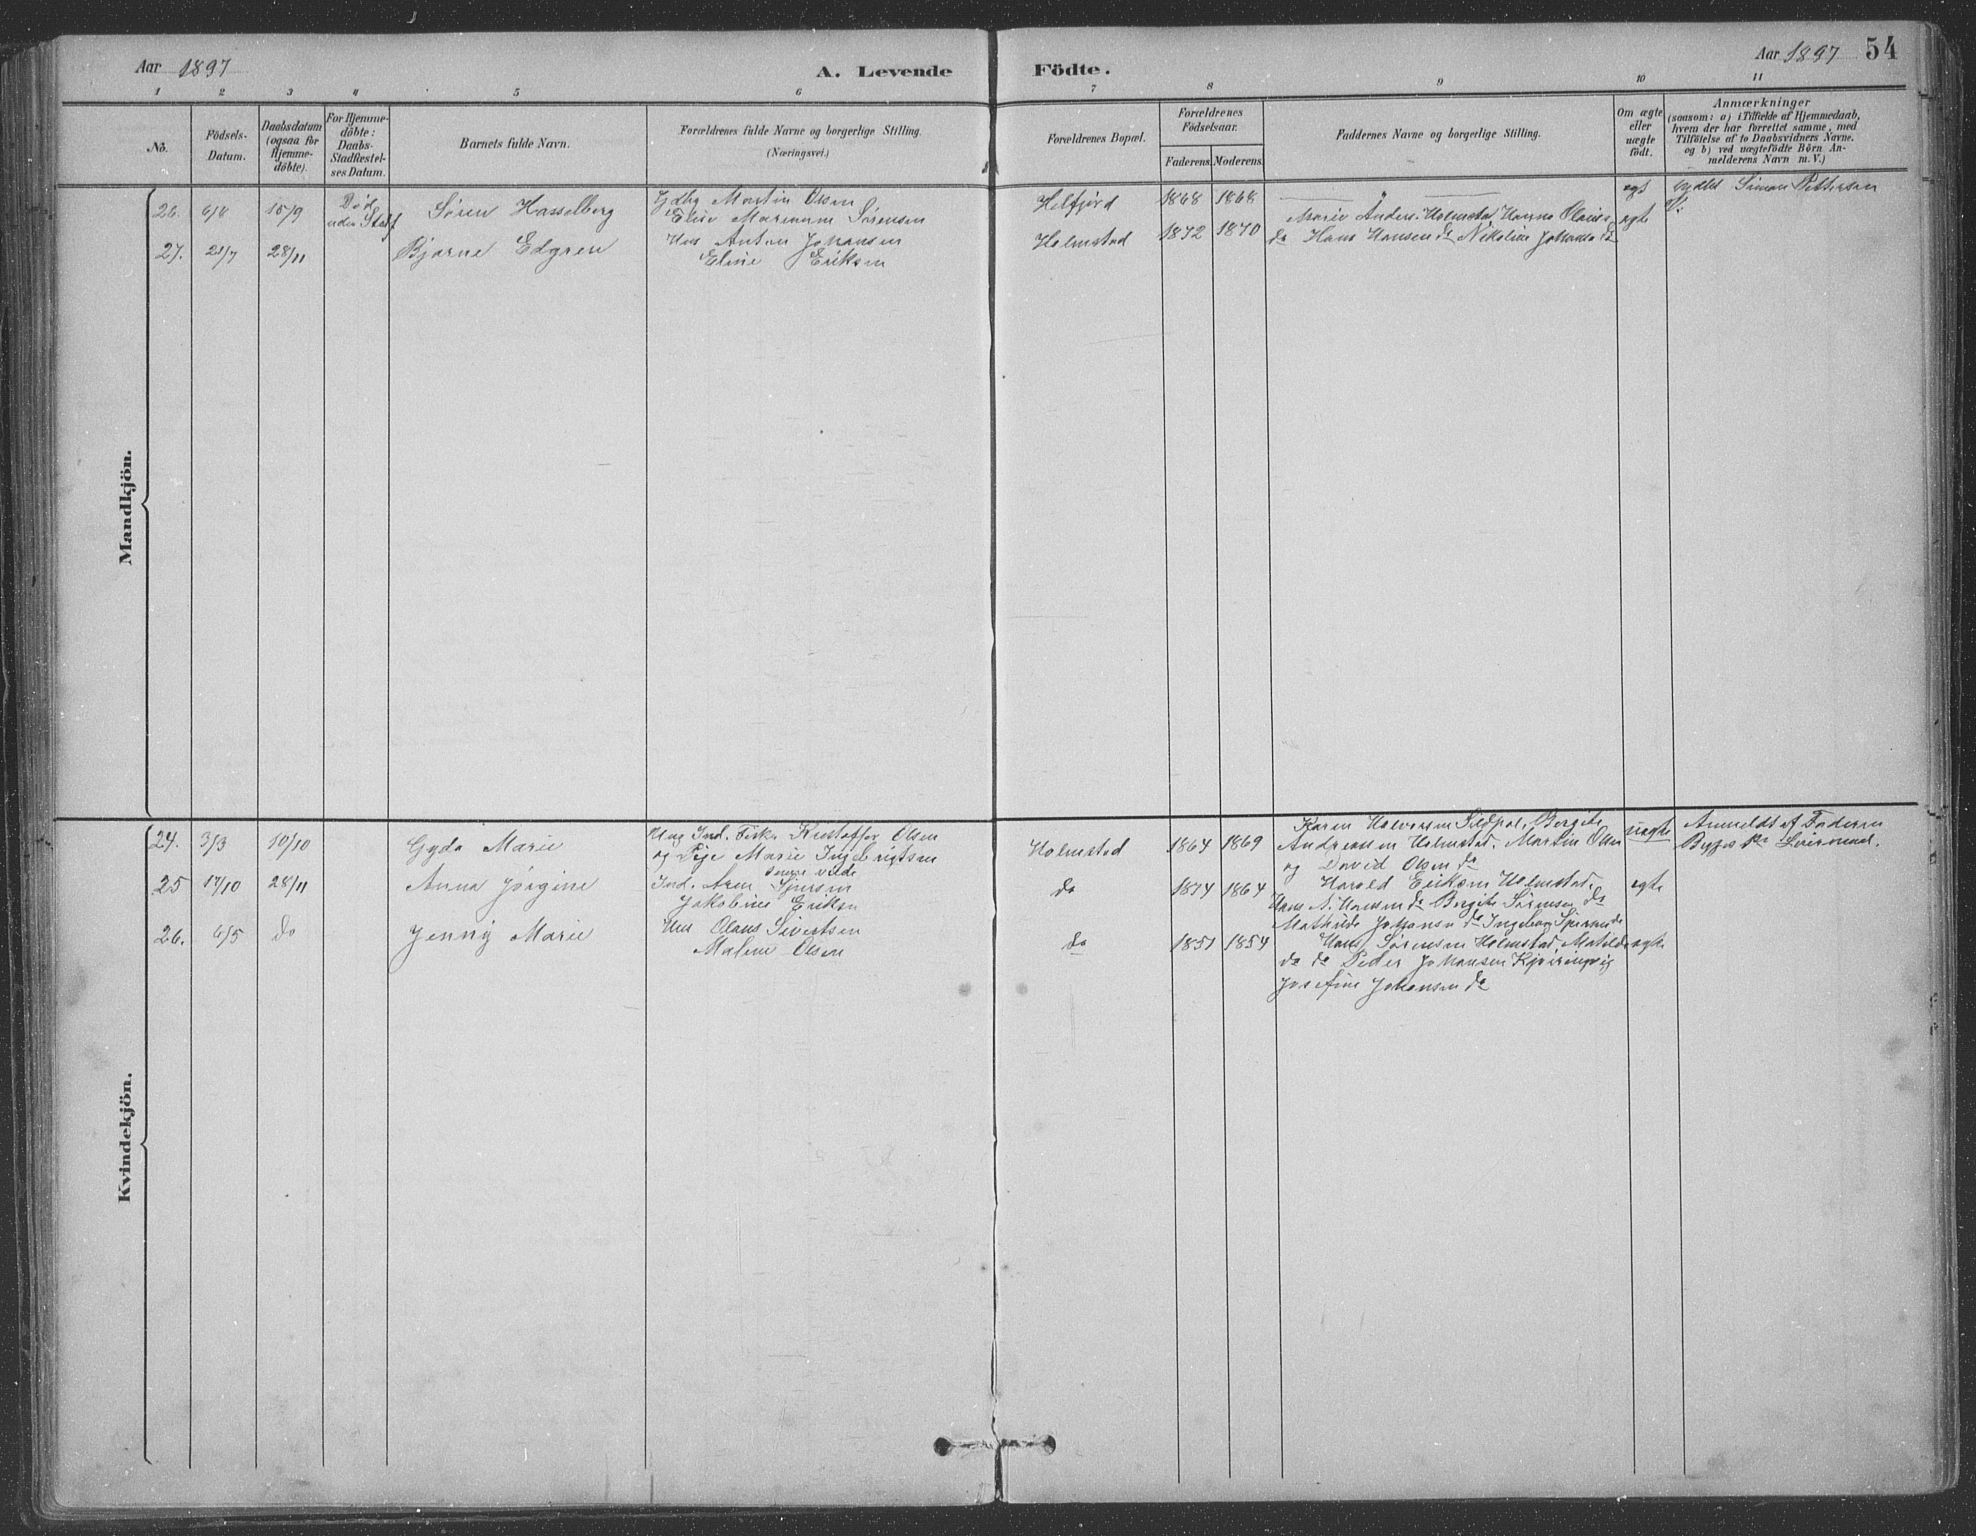 Aar 1897
A. Levende
Födte.
Aar 1897 54
1 2 3 4 5 6 7 8 9 10 11
No.
Födsels-
Datum.
Daabsdatum
(ogsaa for
Hjemme-
döbte).
For Hjemme-
döbte:
Daabs-
Stadfæstel-
ses Datum.
Barnets fulde Navn.
Forældrenes fulde Navne og borgerlige Stilling.
(Næringsvei.)
Forældrenes Bopæl.
Forældrenes
Födselsaar.
Faderens. Moderens.
Faddernes Navne og borgerlige Stilling.
Om ægte
eller
uægte
födt.
Anmærkninger
(saasom: a) i Tilfælde af Hjemmedaab,
hvem der har forrettet samme, med
Tilföielse af to Daabsvidners Navne.
og b) ved uægtefödte Börn An-
melderens Navn m. V.)
Mandkjön.
26. 6/8 15/9 Död uden Stadf Sören Hasselberg
Gdbg Martin Olsen
Elise Marianne Sörensen
Helfjord 1868 1868 "
egt
Simon Pettersen
27. 21/7 28/11 Bjarne Edgren
Hus Anton Johansen
Eline Eriksen
Holmstad 1872 1870
Marie Anders. Holmstad Hanna Olaiss.
do Hans Hansen do Nikoline Johansd do
egte
Kvindekjön.
24. 3/3 10/10 Gyda Marie
Ung Ind. Fisk. Kristoffer Olsen
og Pige Marie Ingebrigtsen
Holmstad 1864 1869
Karen Halvorsen Sildpol, Bergite
Andreassen Holmstad, Martin Olsen
og David Olsen do
uegte
Anmeldt af Faderen
25 17/10 28/11 Anna Jörgine
Ind. Aren
Jakobine Eriksen
do 1874 1864
Harald Eriksen Holmstad.
Hans N. Hansen do Bergite Sörensen do
Mathilde Johansen do Ingeborg
egte
26. 6/5 Do Jenny Marie
Hus Olaus Sivertsen
Malene Olsen
do 1851 1854
Hans Sörensen Holmstad, Matilde
do do Peder Johansen Kjöringvig
Josefine Johansen do
egte